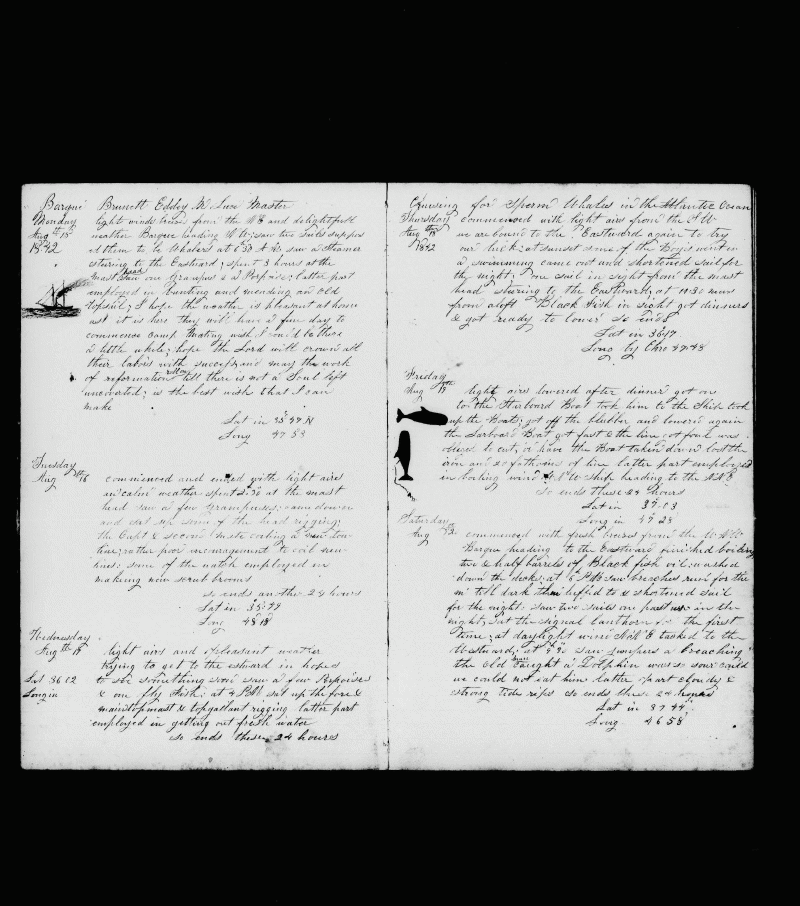 Barque Brunett Eddey M Luce Master
Monday
Aug 15th
1842
light winds from the NE and delightfull
weather Barque heading saw two Sails
them to be Whalers at saw a Steamer
stearing to the Eastward; spent 3 hours at the
mast head saw one Grampus & a Porpoise; latter part
employed in and mending an old
topsail; I hope the weather is pleasant at home
as it is here they will have a fine day to
commence Camp Meeting wish I could be there
a little while; hope the Lord will crown all
their labors with success; and may the work
of reformation till there is not a Soul left
; is the best wish that I can
make
Lat in
Long 47 53
Tuesday
Aug 16th
commenced and ended with light airs
an calm weather spent at the mast
head saw a few Grampuses; came down
and set up some of the head rigging;
the Capt & second mate coiling a new tow
line; rather poor incouragement to coil new
lines: some of the watch employed in
making new scrub brooms
so ends an the 24 hours
Lat in
Long 48 18
Wednesday
Aug
light airs and pleasant weather
trying to get to the estward in hopes
to see something saw a few Porpoises
Lat 36 12
Long in
& one fly Fish: at 4 PM sat up the fore &
main topmast & topgallant rigging latter part
employed in getting out fresh water
so ends these 24 hours
Cruising for Sperm Whales in the Atlantic Ocean
Thursday
Aug 18th
1842
commenced with light airs from the
we are bound to the Eastward again to try
our luck; at sunset some of the Boys went in
a swimming came out and shortened sail for
the night; one sail in sight from the mast
head stearing to the Eastward; at
from aloft Black Fish in sight got dinners
& got ready to lower so ends
Lat in 36 17
Long by Chro 47 48
Friday
Aug 19th
light airs lowered after dinner got one
to the Starboard Boat took him to the Ship took
up the Boats; got off the blubber and lowered again
the Larboard Boat got fast & the line got foul was
obliged to cut, or have the Boat taken down lost the
iron and 20 fathoms of line latter part employed
in boiling wind Ship heading to the NNE
So ends these 24 hours
Lat in 37 03
Long in 47 23
Saturday
Aug
commenced with fresh breezes from the
Barque heading to the Eastward finished boiling
two & half barrels of Black fish oil; washed
down the decks; at 6 PM saw breaches run for the
m till dark then luffed to & shortened sail
for the night: saw two sails one past us in the
night; sat the signal lanthorn for the first
time; at daylight wind tacked to the
Westward; at saw jumpers a breaching
the old man caught a Dolphin was so sour could
we could not eat him latter part cloudy &
strong tide rips so ends these 24 hours
Lat in 37 44
Long 46 58